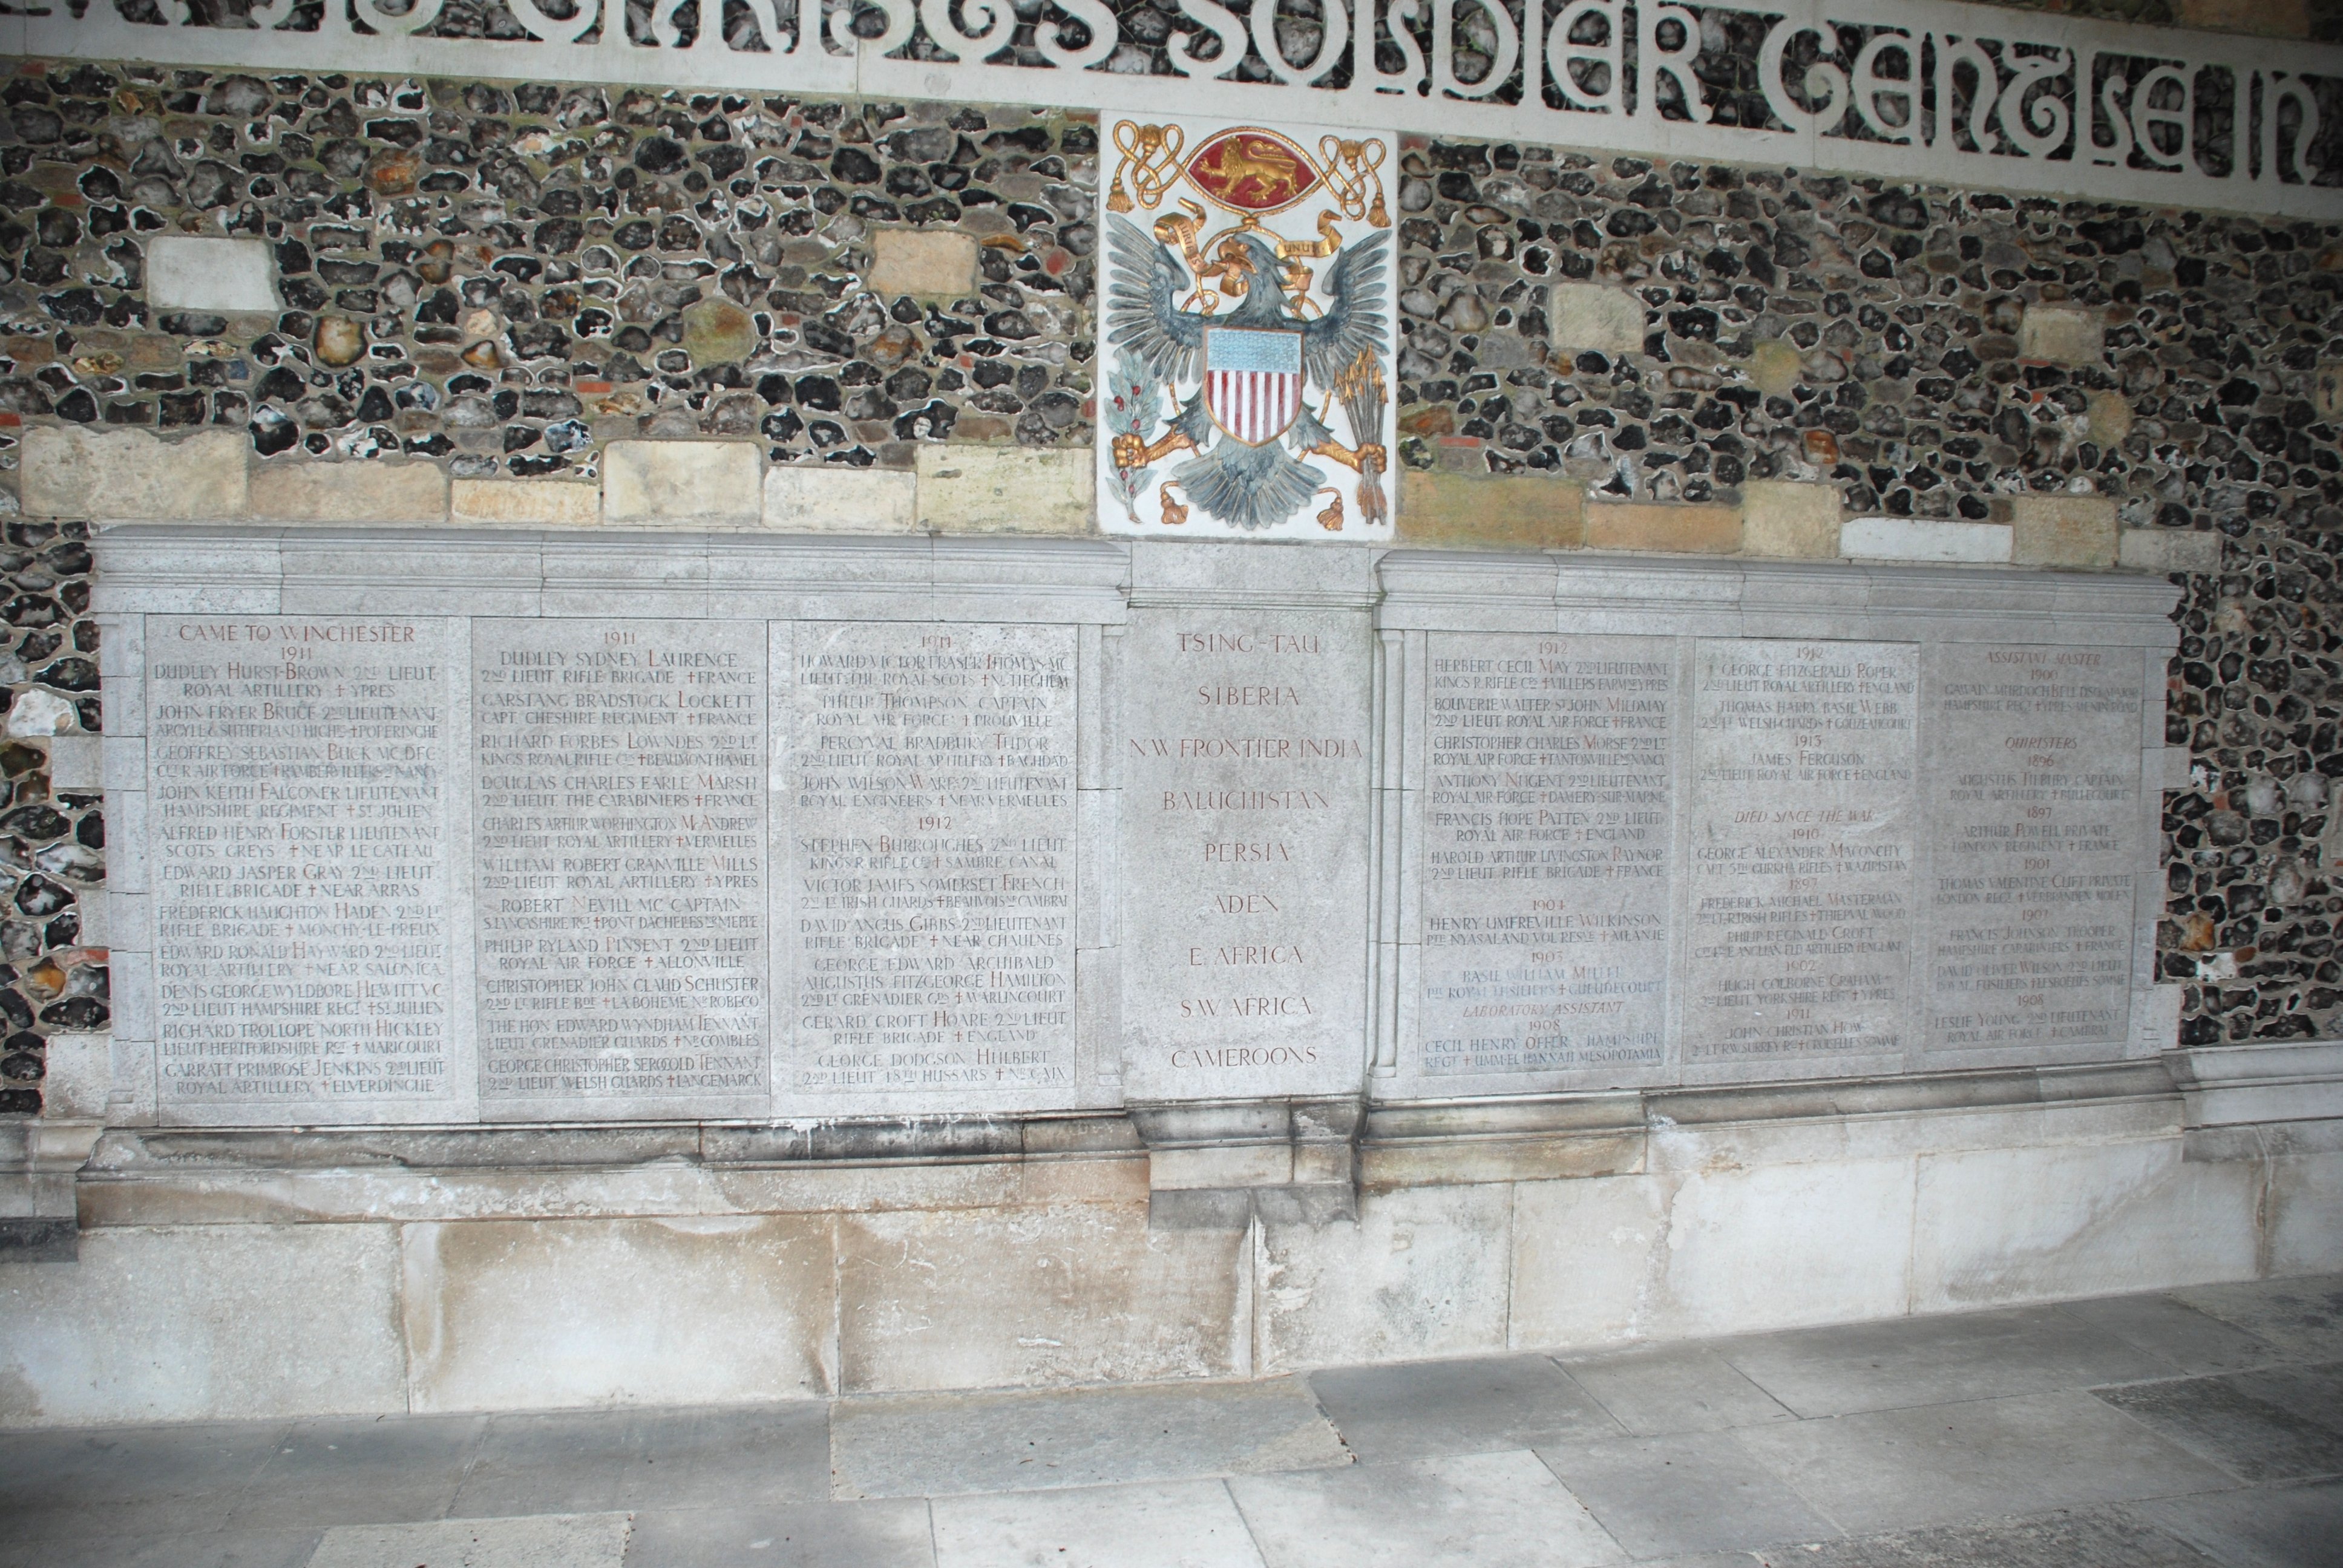 CHRIST'S SOLDIER GENTLE IN
UNUM
CAME TO WINCHESTER
1911
DUDLEY HURST-BROWN 2ND LIEUT.
ROYAL ARTILLERY † YPRES
JOHN FRYER BRUCE 2ND LIEUTENANT
ARGYLL & SUTHERLAND HIGHRS † POPERINGHE
GEOFFREY SEBASTIAN BUCK MC. DFC.
JOHN KEITH FALCONER LIEUTENANT
HAMPSHIRE REGIMENT † ST JULIEN
ALFRED HENRY FORSTER LIEUTENANT
SCOTS GREYS † NEAR LE CATEAU
EDWARD JASPER GRAY 2ND LIEUT.
RIFLE BRIGADE † NEAR ARRAS
FREDERICK HAUGHTON HADEN 2ND LT
RIFLE BRIGADE † MONCHY-LE-PREUX
EDWARD RONALD HAYWARD 2ND LIEUT
ROYAL ARTILLERY † NEAR SALONICA
DENIS GEORGE WYLDBORE HEWITT VC
2ND LIEUT HAMPSHIRE REGT † ST JULIEN
RICHARD TROLLOPE NORTH HICKLEY
LIEUT HERTFORDSHIRE RGT † MARICOURT
GARRATT PRIMROSE JENKINS 2ND LIEUT
ROYAL ARTILLERY † ELVERDINGHE
1911
DUDLEY SYDNEY LAURENCE
2ND LIEUT RIFLE BRIGADE † FRANCE
GARSTANG BRADSTOCK LOCKETT
CAPT CHESHIRE REGIMENT † FRANCE
RICHARD FORBES LOWNDES 2ND LT
KINGS ROYAL RIFLE CPS † BEAUMONT HAMEL
DOUGLAS CHARLES EARLE MARSH
2ND LIEUT THE CARABINIERS † FRANCE
CHARLES ARTHUR WORTHINGTON MCANDREW
2ND LIEUT ROYAL ARTILLERY † VERMELLES
WILLIAM ROBERT GRANVILLE MILLS
2ND LIEUT ROYAL ARTILLERY † YPRES
ROBERT NEVILL MC CAPTAIN
PHILIP RYLAND PINSENT 2ND LIEUT
ROYAL AIR FORCE † ALLONVILLE
CHRISTOPHER JOHN CLAUD SCHUSTER
2ND LT RIFLE BDE † LA BOHEME NR ROBECQ
THE HON EDWARD WYNDHAM TENNANT
LIEUT GRENADIER GUARDS † NR COMBLES
GEORGE CHRISTOPHER SEROCOLD TENNANT
2ND LIEUT WELSH GUARDS † LANGEMARCK
1911
HOWARD VICTOR FRASER THOMAS MC
LIEUT THE ROYAL SCOTS † NR TIEGHEM
PHILIP THOMPSON CAPTAIN
ROYAL AIR FORCE † PROUVILLE
PERCYVAL BRADBURY TUDOR
2ND LIEUT ROYAL ARTILLERY † BAGHDAD
JOHN WILSON WARE 2ND LIEUTENANT
ROYAL ENGINEERS † NEAR VERMELLES
1912
STEPHEN BURROUGHES 2ND LIEUT
KINGS R RIFLE CPS † SAMBRE CANAL
VICTOR JAMES SOMERSET FRENCH
2ND LT IRISH GUARDS † BEAUVOIS NR CAMBRAI
DAVID ANGUS GIBBS 2ND LIEUTENANT
RIFLE BRIGADE † NEAR CHAULNES
GEORGE EDWARD ARCHIBALD
AUGUSTUS FITZGEORGE HAMILTON
2ND LT GRENADIER GDS † WARLINCOURT
GERARD CROFT HOARE 2ND LIEUT
RIFLE BRIGADE † ENGLAND
GEORGE DODGSON HULBERT
2ND LIEUT 18TH HUSSARS † NR CAIX
TSING-TAU
SIBERIA
N.W. FRONTIER INDIA
BALUCHISTAN
PERSIA
ADEN
E. AFRICA
S.W. AFRICA
CAMEROONS
1912
HERBERT CECIL MAY 2ND LIEUTENANT
KINGS R RIFLE CPS † VILLERS FARM NR YPRES
BOUVERIE WALTER ST JOHN MILDMAY
2ND LIEUT ROYAL AIR FORCE † FRANCE
CHRISTOPHER CHARLES MORSE 2ND LT
ROYAL AIR FORCE † TANTONVILLE NR NANCY
ANTHONY NUGENT 2ND LIEUTENANT
ROYAL AIR FORCE † DAMERY-SUR-MARNE
FRANCIS HOPE PATTEN 2ND LIEUT
ROYAL AIR FORCE † ENGLAND
HAROLD ARTHUR LIVINGSTON RAYNOR
2ND LIEUT RIFLE BRIGADE † FRANCE
1904
HENRY UMFREVILLE WILKINSON
PTE NYASALAND VOL RESVE † MLANJE
1903
BASIL WILLIAM MILLER
PTE ROYAL FUSILIERS † GUEUDECOURT
LABORATORY ASSISTANT
1908
CECIL HENRY OFFER HAMPSHIRE
REGT † UMM-EL-HANNAH MESOPOTAMIA
1912
GEORGE FITZGERALD ROPER
2ND LIEUT ROYAL ARTILLERY † ENGLAND
THOMAS HARRY BASIL WEBB
2ND LT WELSH GUARDS † GOUZEAUCOURT
1913
JAMES FERGUSON
2ND LIEUT ROYAL AIR FORCE † ENGLAND
DIED SINCE THE WAR
1910
GEORGE ALEXANDER MACONCHY
CAPT 5TH GURKHA RIFLES † WAZIRISTAN
FREDERICK MICHAEL MASTERMAN
2ND LT R IRISH RIFLES † THIEPVAL WOOD
PHILIP REGINALD CROFT
1902
HUGH COLBORNE GRAHAM
2ND LIEUT YORKSHIRE REGT † YPRES
1911
JOHN CHRISTIAN HOW
ASSISTANT MASTER
1900
GAWAIN MURDOCH BELL DSO MAJOR
HAMPSHIRE REGT † YPRES-MENIN ROAD
QUIRISTERS
1896
AUGUSTUS TILBURY CAPTAIN
ROYAL ARTILLERY † BULLECOURT
1897
ARTHUR POWELL PRIVATE
LONDON REGIMENT † FRANCE
1901
THOMAS VALENTINE CLIFT PRIVATE
LONDON REGT † VERBRANDEN MOLEN
1907
FRANCIS JOHNSON TROOPER
HAMPSHIRE CARABINIERS † FRANCE
DAVID OLIVER WILSON 2ND LIEUT
1908
LESLIE YOUNG 2ND LIEUTENANT
ROYAL AIR FORCE † CAMBRAI